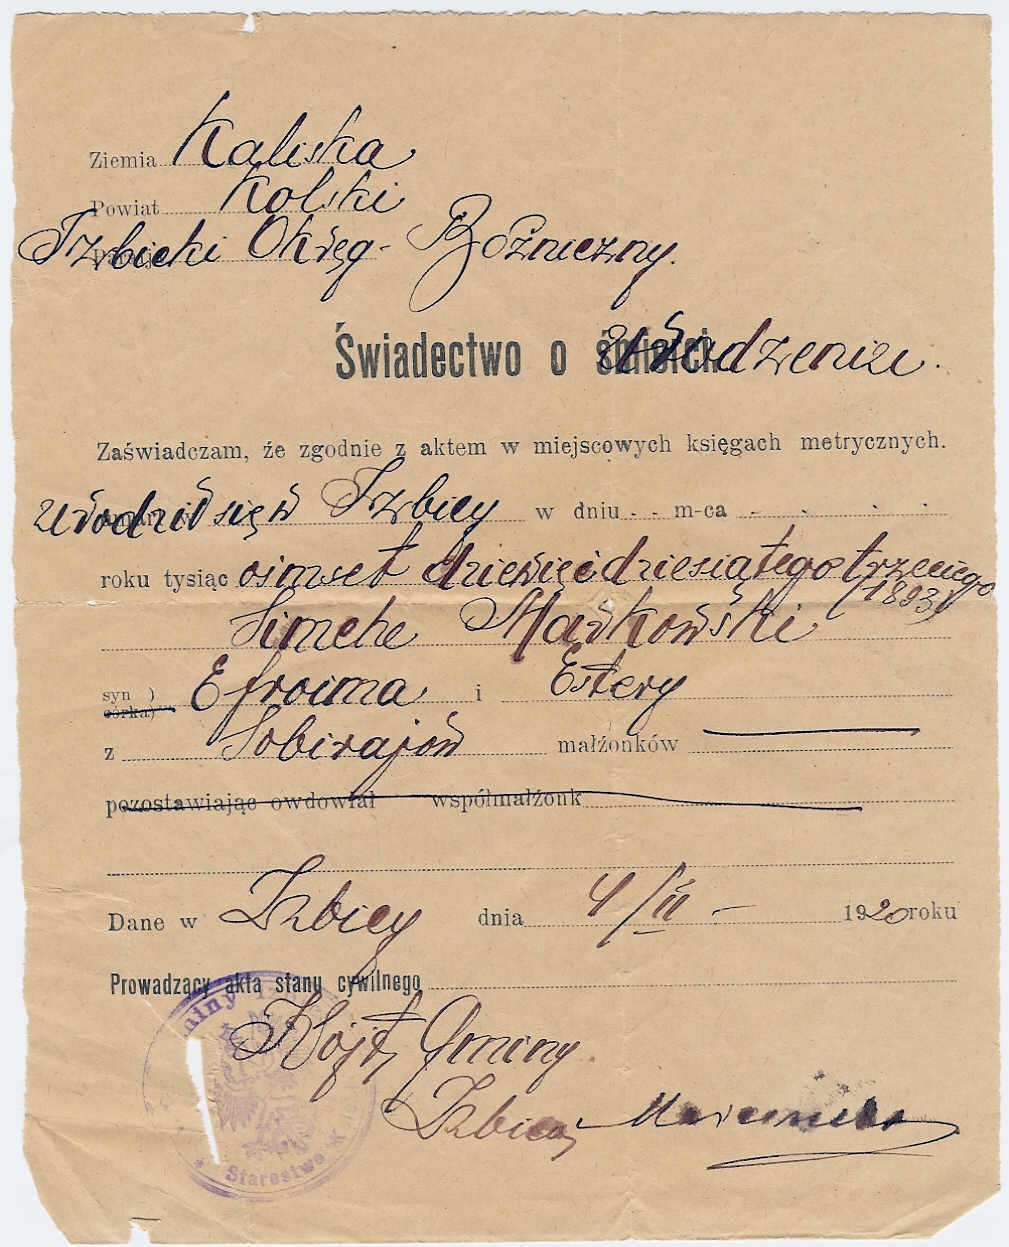 Ziemia Kaliska
Powiat Kolski
Izbicki Okręg Bożniczny.
Świadectwo o urodzeniu.
Zaświadczam, że zgodnie z aktem w miejscowych księgach metrycznych.
urodził się w Izbicy w dniu - - m-ca - . . .
roku tysiąc ośmset dziewięćdziesiątego trzeciego
(1893)
Simche Markowski
syn )
córka) Efroima i Estery
z Sobirajów małżonków
pozostawiając owdowiał współmałżonk
Dane w Izbicy dnia 4/II - 1920 roku
Prowadzący akta stanu cywilnego
Wójt Gminy
Izbica
Starostwo